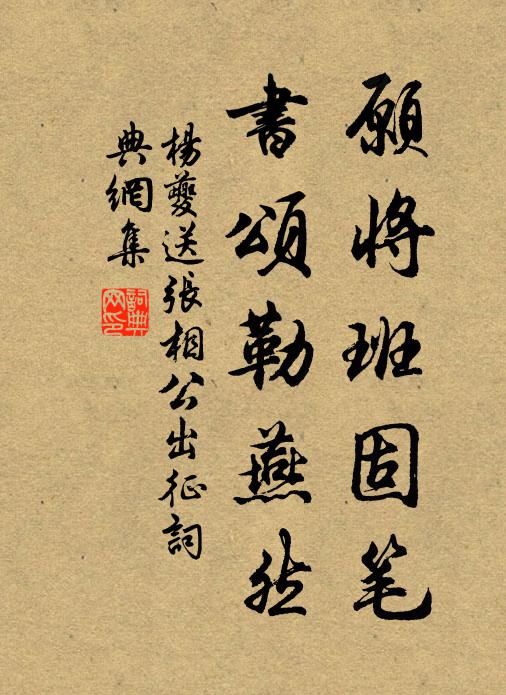 願将班固笔
書頌勒燕然
楊夔送張相公出征詞
典網集
詞典網印